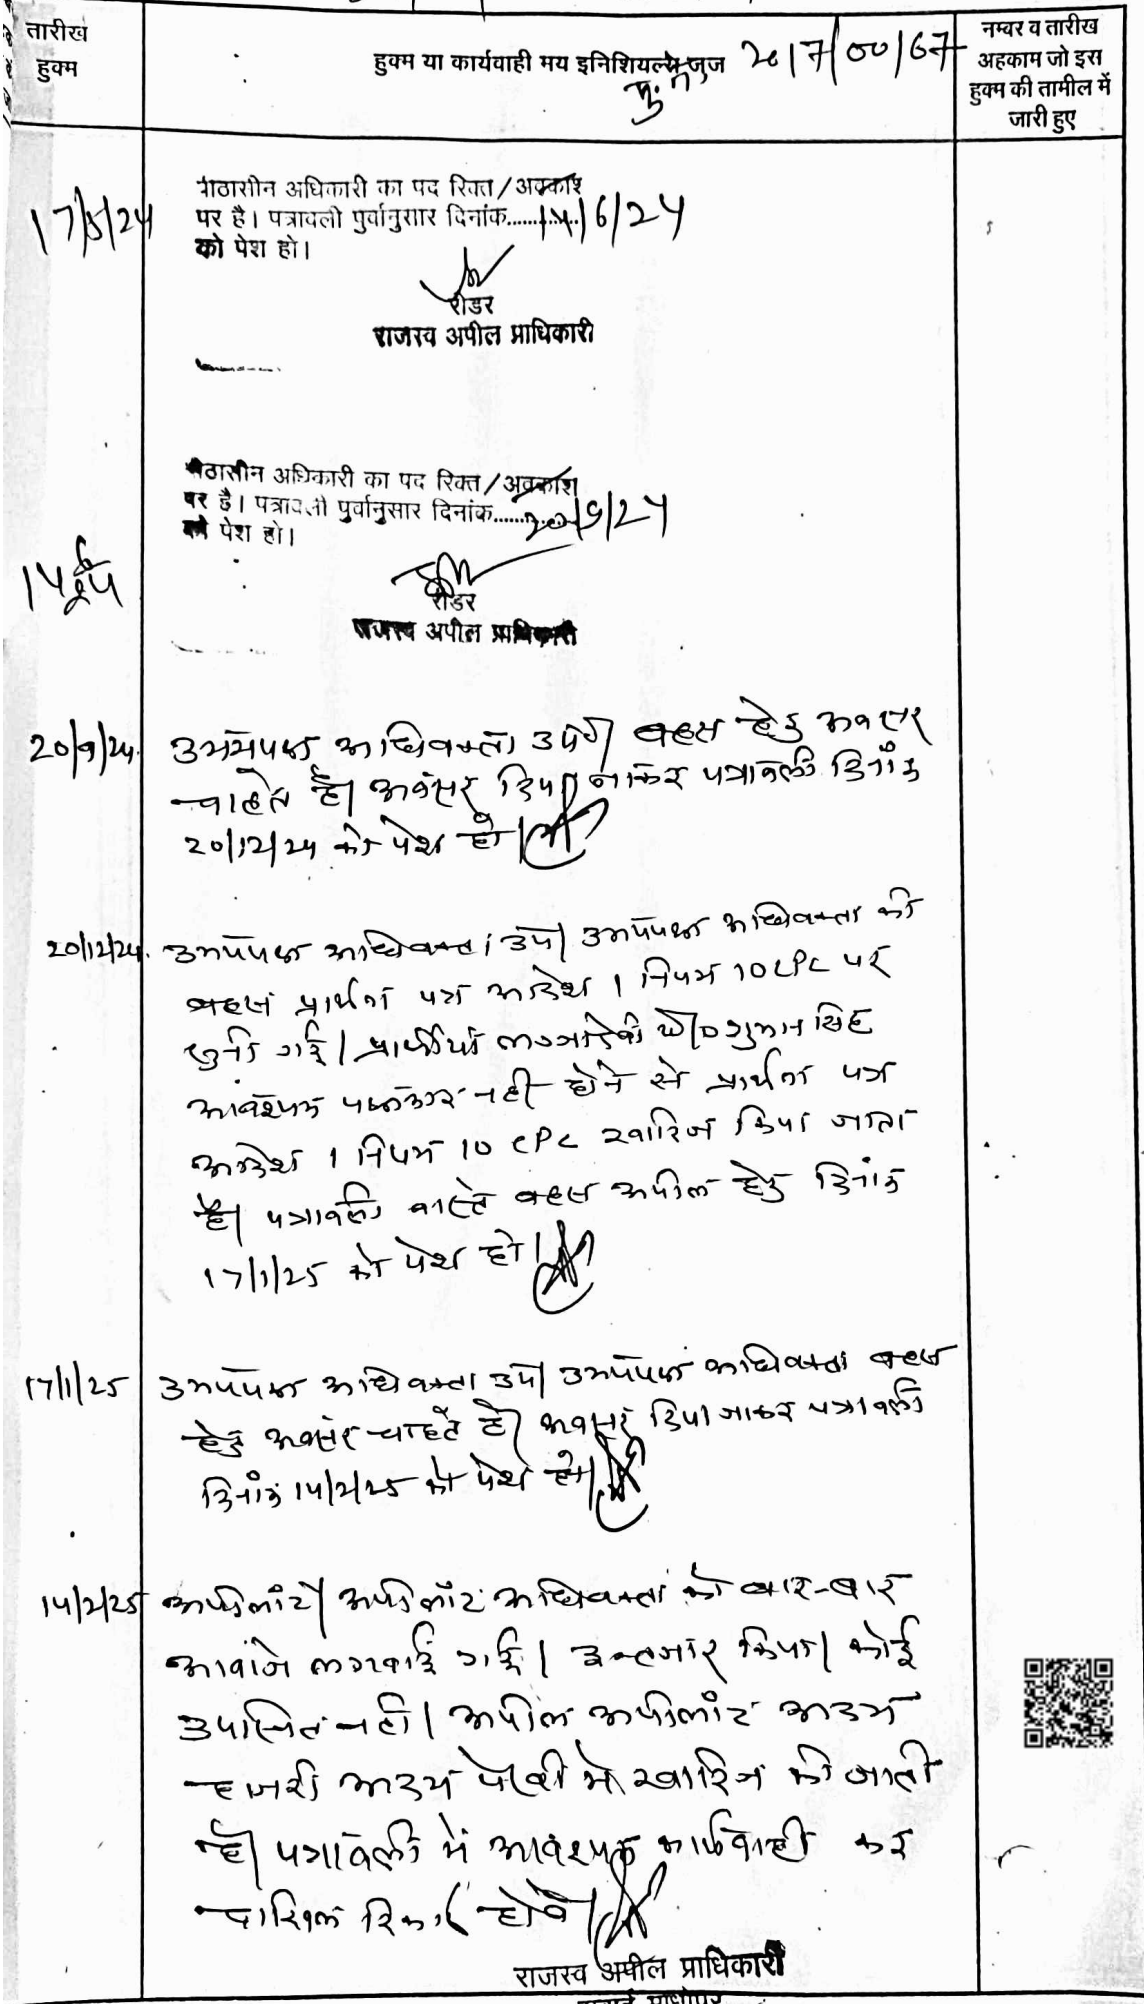 तारीख
हुक्म
हुक्म या कार्यवाही मय इनिशियल्स जज 2017/00/67
मु.न.
नम्बर व तारीख
अहकाम जो इस
हुक्म की तामील में
जारी हुए
17/5/24
पीठासीन अधिकारी का पद रिक्त/अवकाश
पर है। पत्रावली पुर्वानुसार दिनांक.........14/6/24
को पेश हो।
रीडर
राजस्व अपील प्राधिकारी
पीठासीन अधिकारी का पद रिक्त/अवकाश
पर है। पत्रावली पुर्वानुसार दिनांक......20/9/24
को पेश हो।
14/6/24
रीडर
राजस्व अपील प्राधिकारी
20/9/24. उभयपक्ष अधिवक्ता उप०। बहस हेतु अवसर
चाहते है। अवसर दिया जाकर पत्रावली दिनांक
20/12/24 को पेश हो।
20/12/24. उभयपक्ष अधिवक्ता उप०। उभयपक्ष अधिवक्ता की
बहस प्रार्थना पत्र आदेश 1 नियम 10 CPC पर
सुनी गई। प्रार्थीया गुमान सिंह
आवश्यक पक्षकार नही होने से प्रार्थना पत्र
आदेश 1 नियम 10 CPC खारिज किया जाता
है। पत्रावली वास्ते बहस अपील हेतु दिनांक
17/1/25 को पेश हो।
17/1/25 उभयपक्ष अधिवक्ता उप०। उभयपक्ष अधिवक्ता बहस
हेतु अवसर चाहते है। अवसर दिया जाकर पत्रावली
दिनांक 14/2/25 को पेश हो।
14/2/25 अपीलांट। अपीलांट अधिवक्ता को बार-बार
आवाजे लगवाई गई। इन्तजार किया। कोई
उपस्थित नही। अपील अपीलांट अदम
हाजरी अदम पेरवी मे खारिज की जाती
है। पत्रावली में आवश्यक कार्यवाही कर
दाखिल रिकार्ड होवे।
राजस्व अपील प्राधिकारी
सवाई माधोपुर